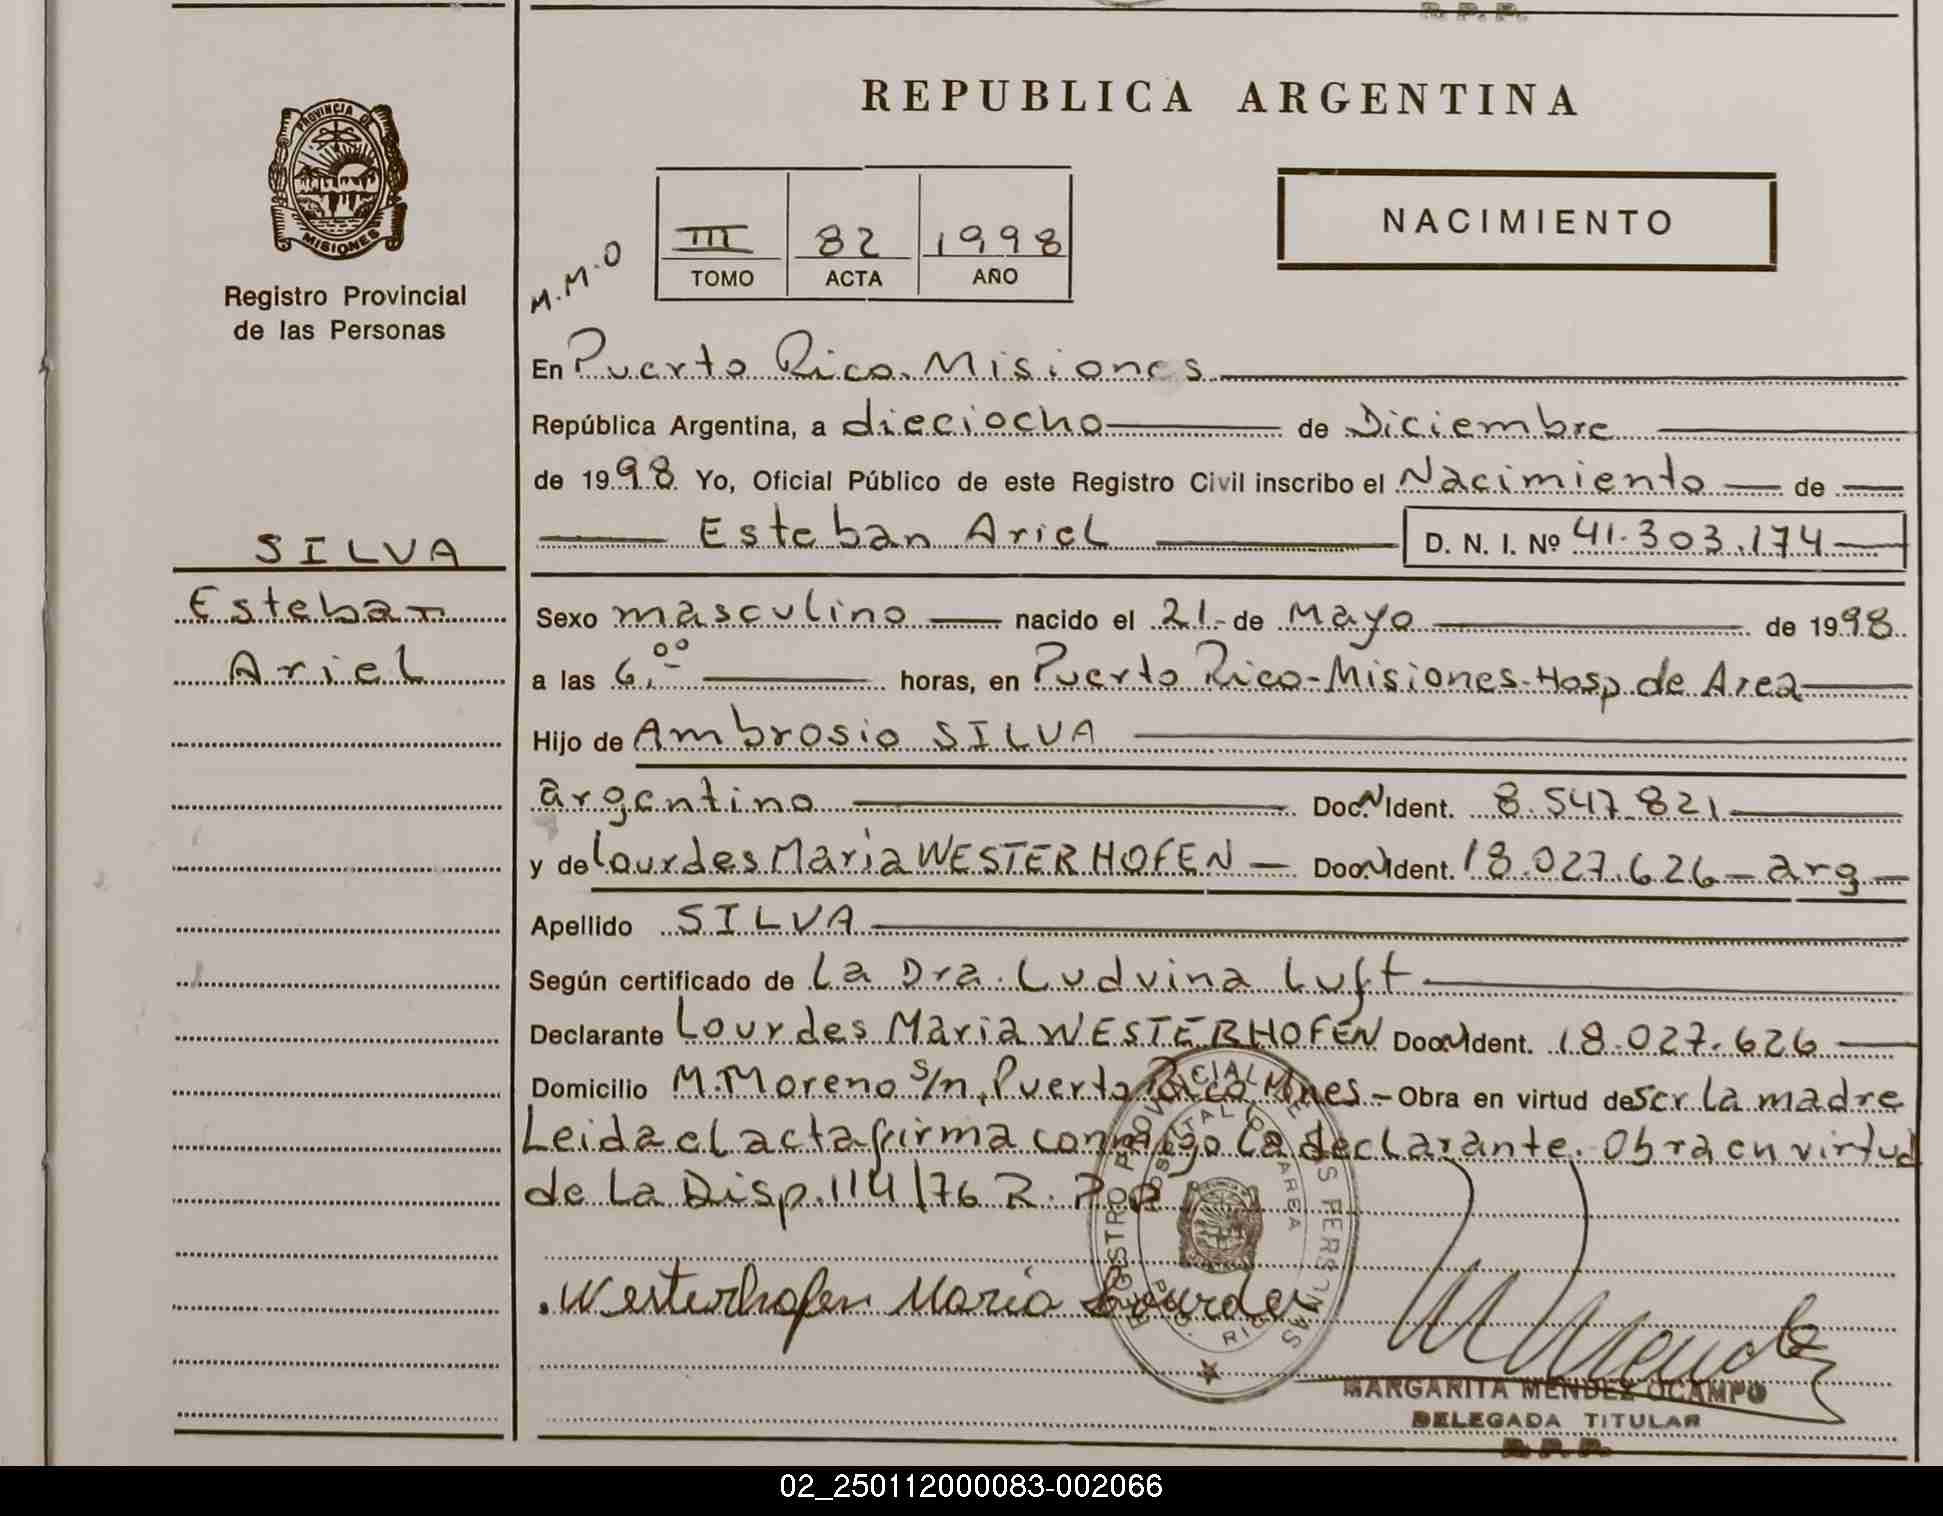 R. P. P.
PROVINCIA DE
MISIONES
Registro Provincial
de las Personas
REPUBLICA ARGENTINA
NACIMIENTO
M.M.O
III 82 1998
TOMO ACTA AÑO
En Puerto Rico. Misiones
República Argentina, a dieciocho de Diciembre
de 1998 Yo, Oficial Público de este Registro Civil inscribo el Nacimiento de
Esteban Ariel D. N. I. Nº 41.303.174
SILVA
Esteban
Ariel
Sexo masculino nacido el 21 de Mayo de 1998
a las 6,00 horas, en Puerto Rico-Misiones-Hosp. de Area
Hijo de Ambrosio SILVA
argentino Doc. N Ident. 8.547.821
y de Lourdes Maria WESTERHOFEN Doc. N Ident. 18.027.626 - arg
Apellido SILVA
Según certificado de La Dra. Ludvina Luft
Declarante Lourdes Maria WESTERHOFEN Doc. N Ident. 18.027.626
Domicilio M. Moreno s/n, Puerto Rico Mnes - Obra en virtud de ser la madre
Leida el acta firma conmigo la declarante. Obra en virtud
de la Disp. 114/76 R. P. P.
REGISTRO PROVINCIAL DE LAS PERSONAS
HOSPITAL DE AREA
PTO. RICO
Westerhofen Maria Lourdes
M Mendez
MARGARITA MENDEZ OCAMPO
DELEGADA TITULAR
R. P. P.
02_250112000083-002066